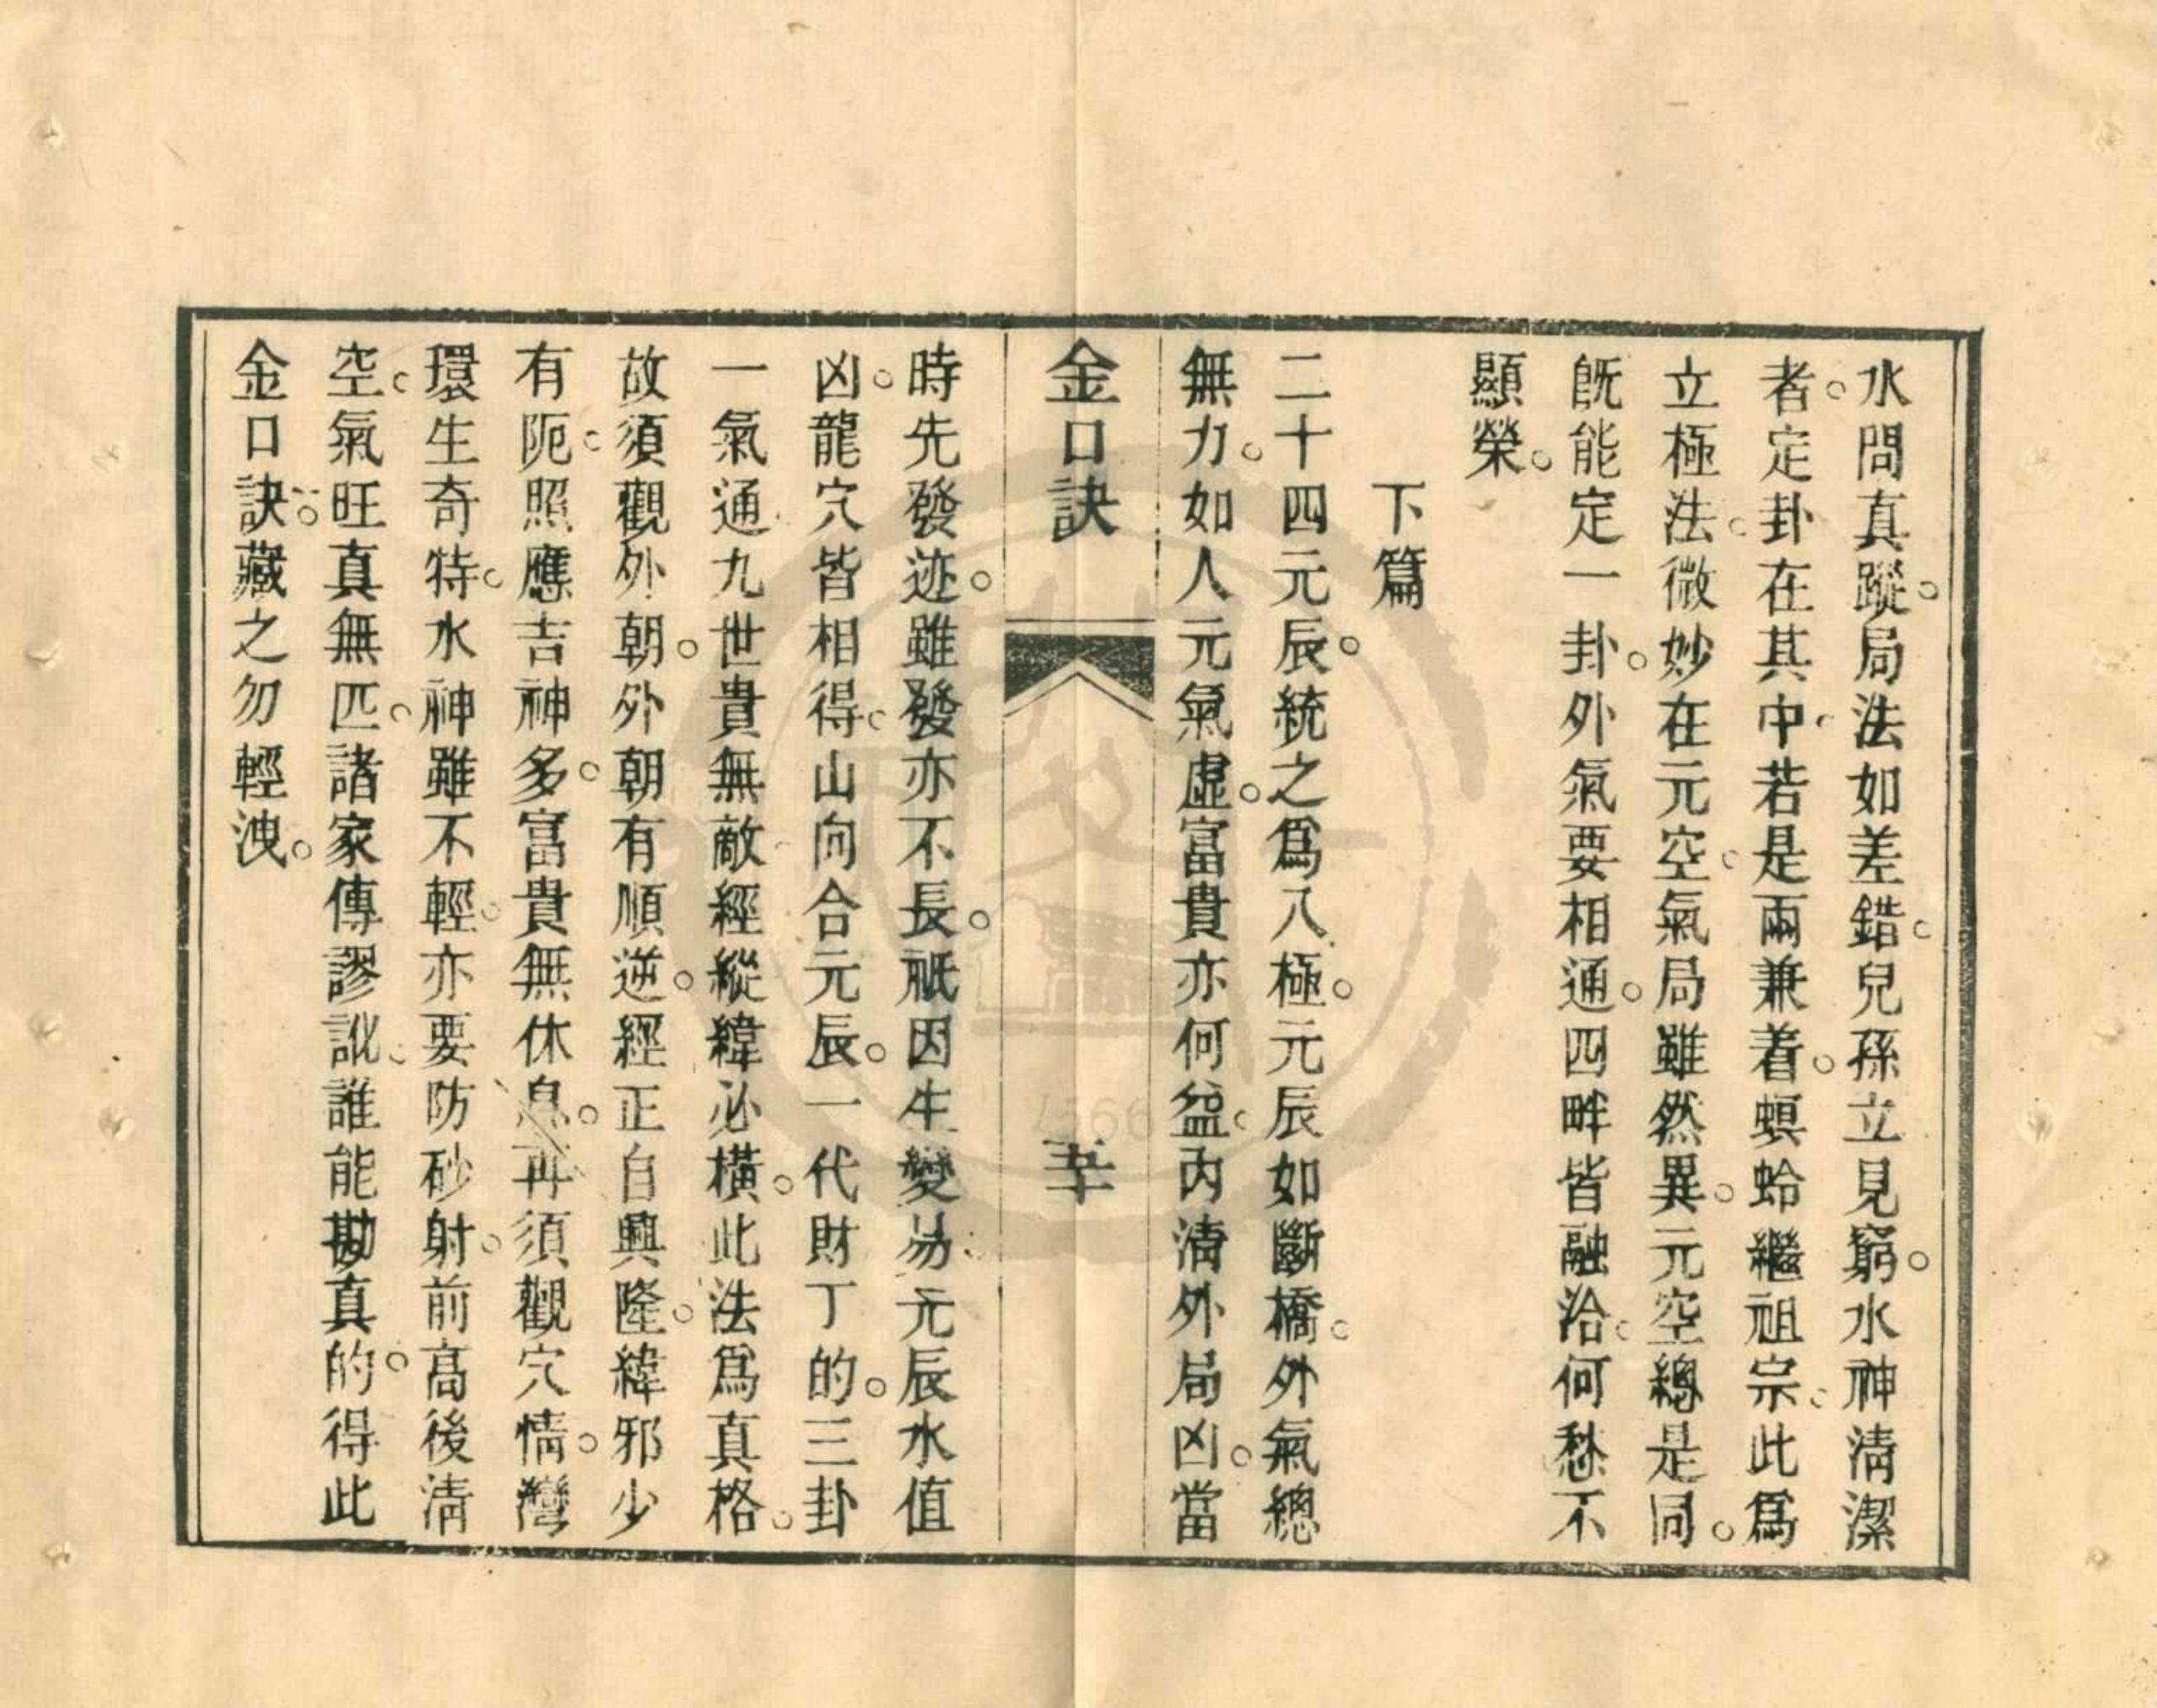 水問真蹤。局法如差錯。兒孫立見窮。水神清潔
者。定卦在其中。若是兩兼着。螟蛉繼祖宗。此爲
立極法。微妙在元空。氣局雖然異。元空總是同。
旣能定一卦。卦外氣要相通。四畔皆融洽。何愁不
顯榮。
下篇
二十四元辰。統之爲八極。元辰如斷橋。外氣總
無力。如人元氣虛。富貴亦何益。內淸外局凶。當
金口訣
時先發迹。雖發亦不長。祇因生變易。元辰水值
凶。龍穴皆相得。山向合元辰。一代財丁的。三卦
一氣通。九世貴無敵。經縱緯必橫。此法爲真格。
故須觀外朝。外朝有順逆。經正自興隆。緯邪少
有阨。照應吉神多。富貴無休息。再須觀穴情。灣
環生奇特。水神雖不輕。亦要防砂射。前高後淸
空。氣旺真無匹。諸家傳謬訛。誰能勘真的。得此
金口訣。藏之勿輕洩。